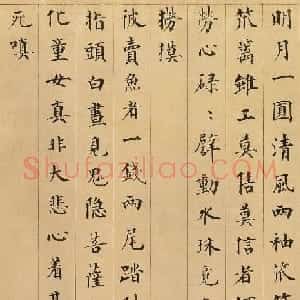 明月一圓清風兩袖
籬雖工真估莫信者
勞心碌々擘動水珠
撈摸
賣魚者一錢兩尾踏
指頭白晝見鬼隱菩薩
化童女真非大悲心着
死嗔
Shufaziliao.COM